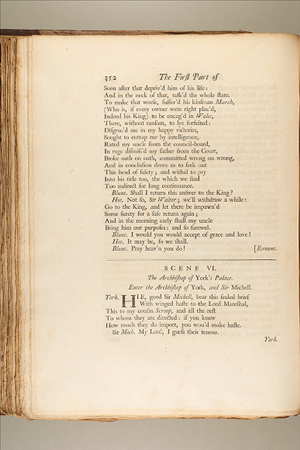 352 The First Part of
Soon after that depriv'd him of his life:
And in the neck of that, task'd the whole state.
To make that worse, suffer'd his kinsman March,
(Who is, if every owner were right plac'd,
Indeed his King) to be encag'd in Wales,
There, without ransom, to lye forfeited:
Disgrac'd me in my happy victories,
Sought to entrap me by intelligence,
Rated my uncle from the council-board,
In rage dismiss'd my father from the Court,
Broke oath on oath, committed wrong on wrong,
And in conclusion drove us to seek out
This head of safety; and withal to pry
Into his title too, the which we find
Too indirect for long continuance.
Blunt. Shall I return this answer to the King?
Hot. Not so, Sir Walter; we'll withdraw a while:
Go to the King, and let there be impawn'd
Some surety for a safe return again;
And in the morning early shall my uncle
Bring him our purposes: and so farewel.
Blunt. I would you would accept of grace and love!
Hot. It may be, so we shall.
Blunt. Pray heav'n you do! [Exeunt.
SCENE VI.
The Archbishop of York's Palace.
Enter the Archbishop of York, and Sir Michell.
York. HIE, good Sir Michell, bear this sealed brief
With winged haste to the Lord Mareshal,
This to my cousin Scroop, and all the rest
To whom they are directed: if you knew
How much they do import, you wou'd make haste.
Sir Mich. My Lord, I guess their tenour.
York.